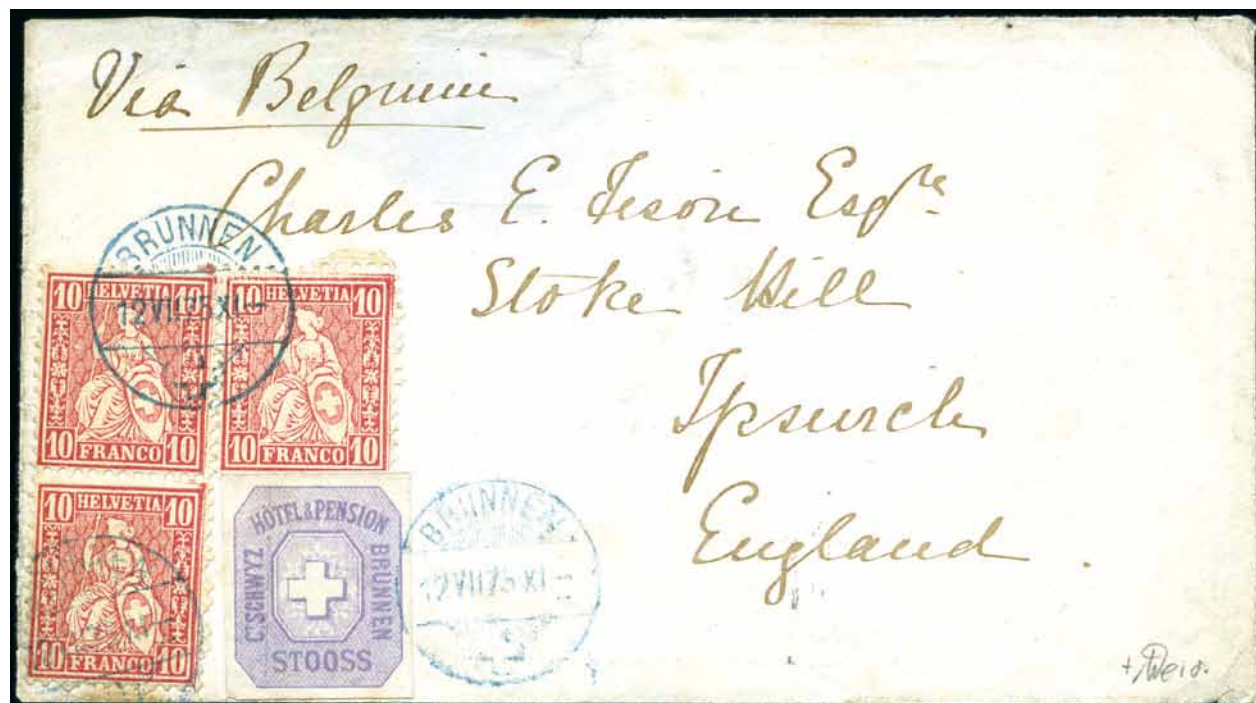 Via Belgium
Charles E. Esqre
Stoke Hill
Ipswich
England.
BRUNNEN
12 VII 75 XI—
10 HELVETIA 10
10 FRANCO 10
10 HELVETIA 10
10 FRANCO 10
10 HELVETIA 10
10 FRANCO 10
HÔTEL & PENSION
Ct SCHWYZ
BRUNNEN
STOOSS
BRUNNEN
12 VII 75 XI—